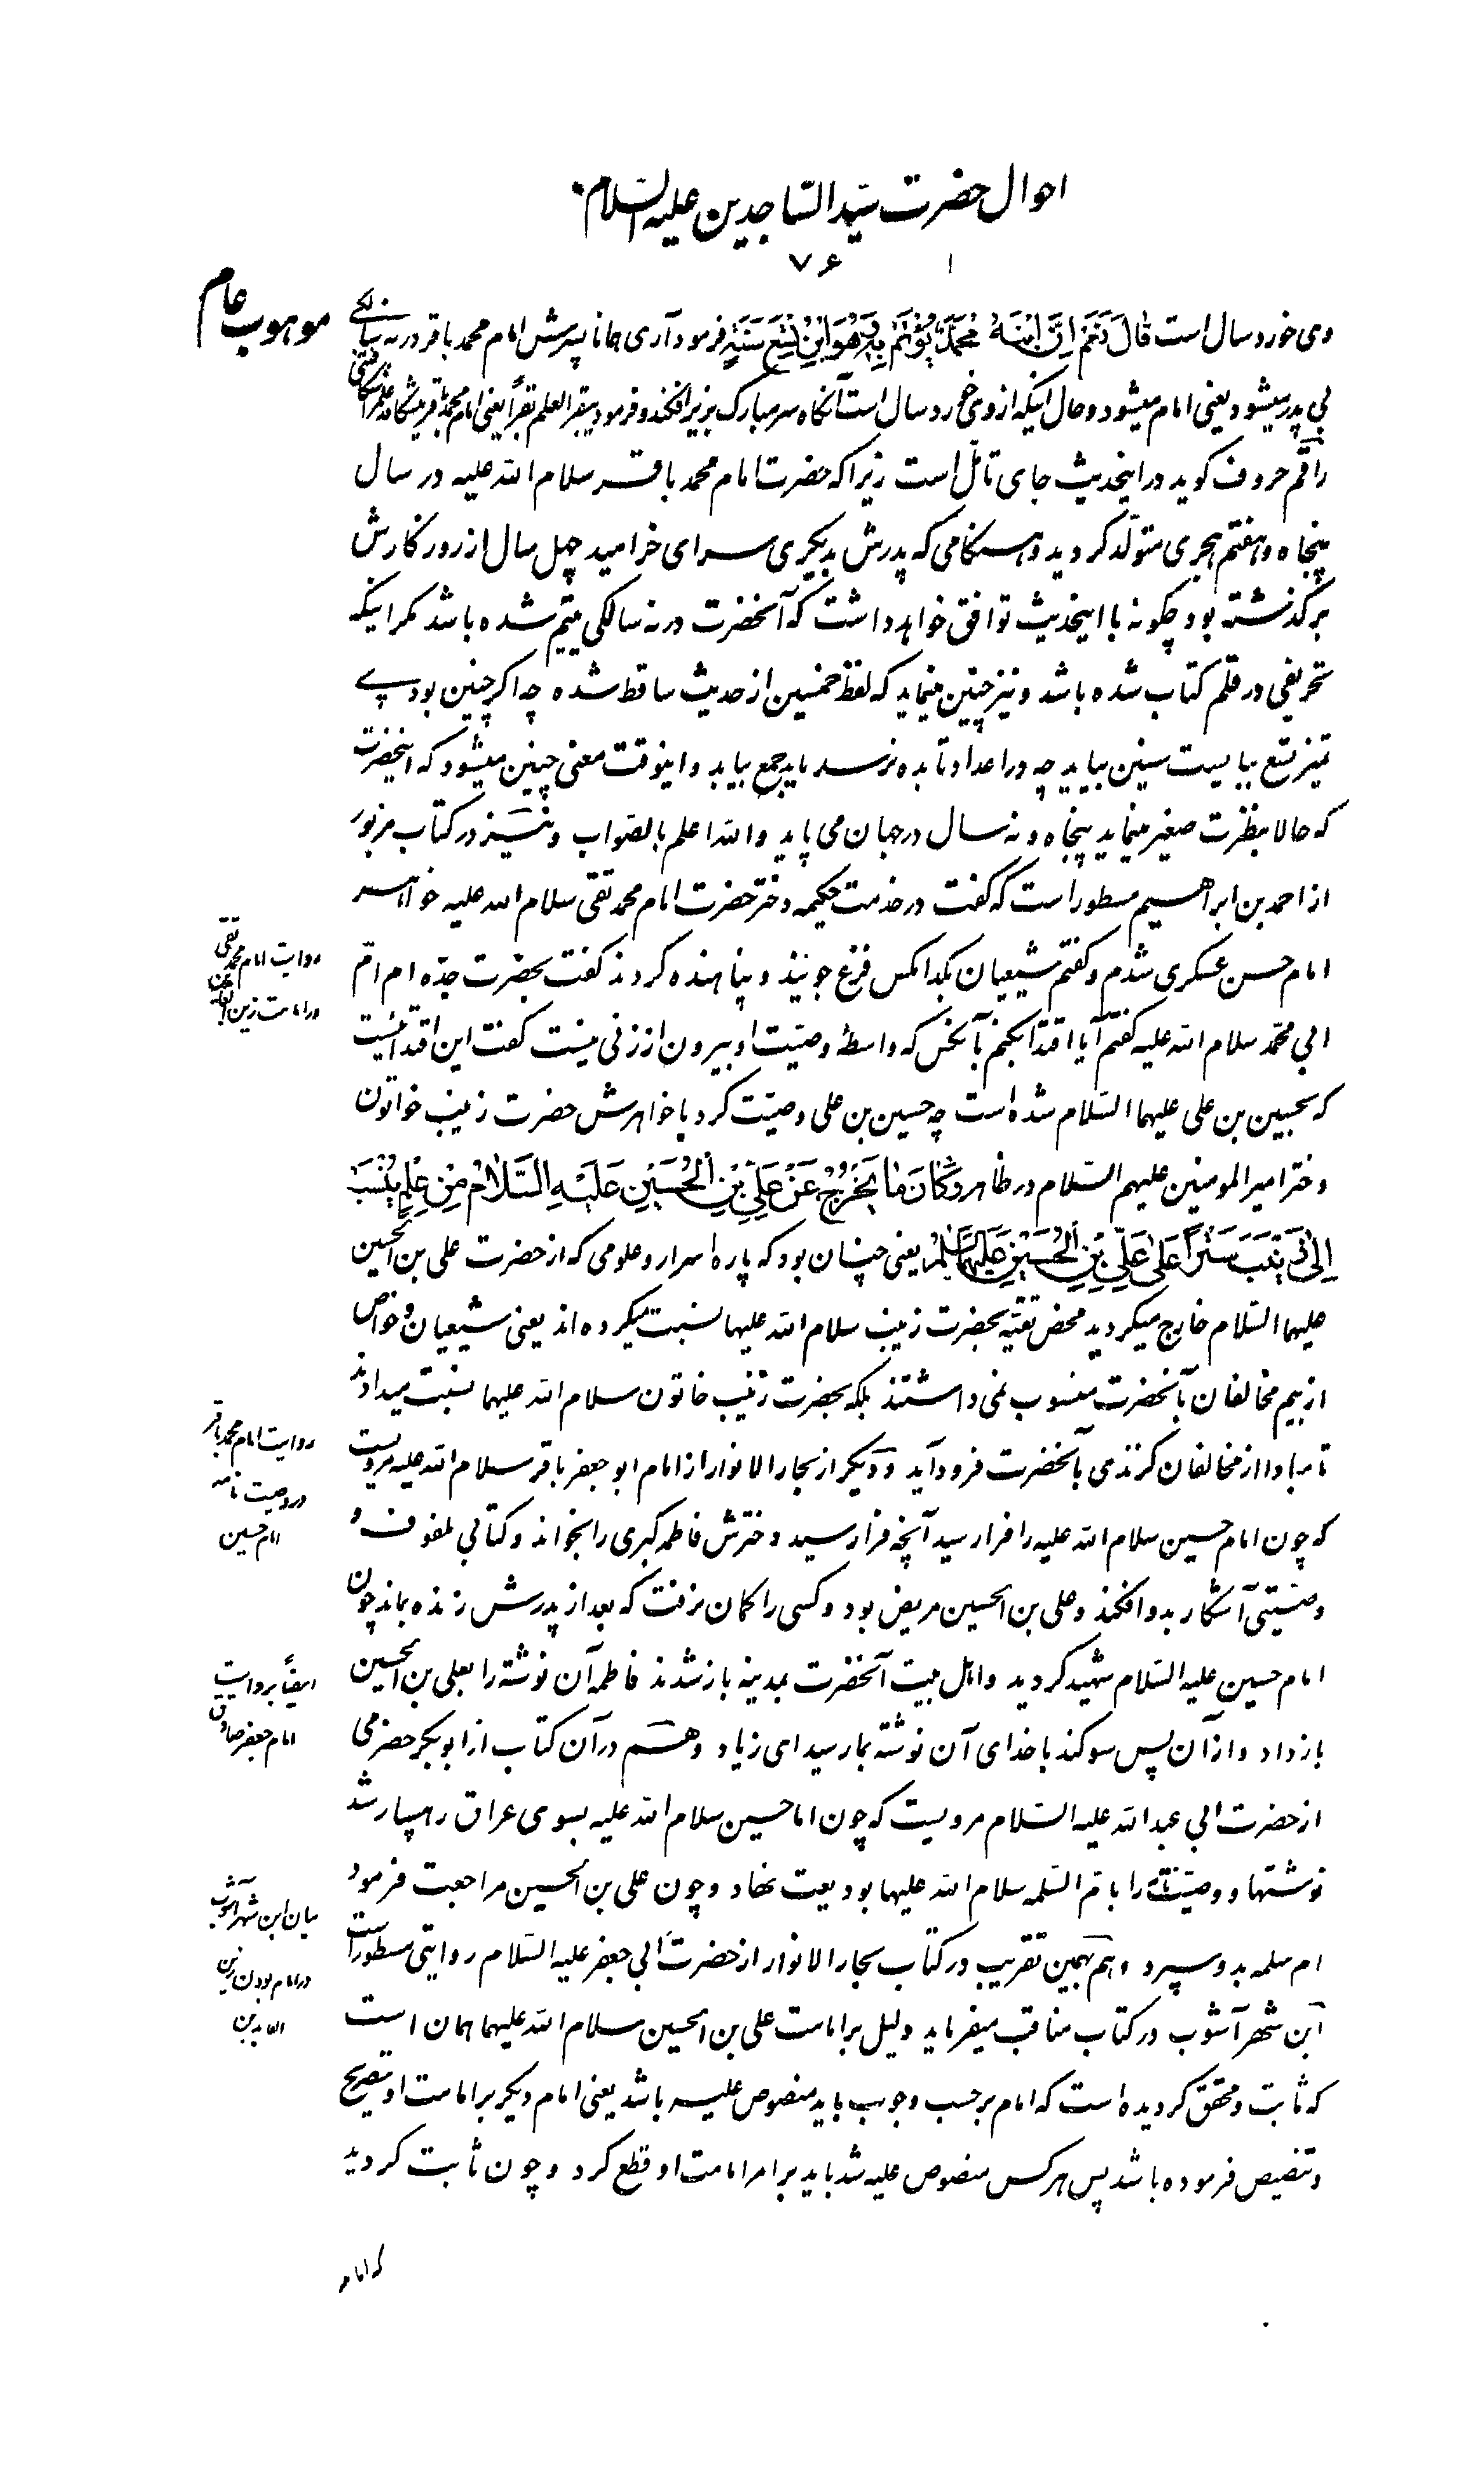 احوال حضرت سیّد السّاجدین علیه السّلام
۷۶
موهوب عام
وی خورد سال است قالَ نَعَم اِنَّ ابْنَهُ مُحَمَّد یُوْتَمُ بِهِ وَهُوَ ابْنُ تِسْعِ سَنَةٍ فرمود آری همانا پسرش امام محمد باقر در نه سالکی
بی پدر میشود یعنی امام میشود و حال اینکه از وی خورد سال است آنکاه سر مبارک بزیر افکند و فرمود یبقر العلم بقراً یعنی امام محمد باقر میشکافد علم را شکافتنی
راقم حروف کوید در اینحدیث جای تأمّل است زیرا که حضرت امام محمد باقر سلام الله علیه در سال
پنجاه و هفتم هجری متولّد کردید و هنکامی که پدرش بدیکری سرای خرامید چهل سال از روزکارش
برکذشته بود چکونه با اینحدیث توافق خواهد داشت که آنحضرت در نه سالکی یتیم شده باشد مکر اینکه
تحریفی در قلم کتاب شده باشد و نیز چنین مینماید که لفظ خمسین از حدیث ساقط شده چه اکر چنین بودی
تمیز تسع ببایست سنین بیاید چه در اعداد تا بده نرسد باید جمع بیاید و اینوقت معنی چنین میشود که اینحضرت
که حالا بنظرت صغیر مینماید پنجاه و نه سال در جهان می پاید والله اعلم بالصّواب و نیز در کتاب مزبور
از احمد بن ابراهیم مسطور است که کفت در خدمت حکیمه دختر حضرت امام محمد تقی سلام الله علیه خواهر
روایت امام محمد تقی
در امامت زین العابدین
امام حسن عسکری شدم و کفتم شیعیان بکدامکس فزع جویند و پناهنده کردند کفت بحضرت جدّه ام امّ
ابی محمّد سلام الله علیه کفتم آیا اقتدا بکنم بآنکس که واسطهٔ وصیّت او بیرون از زنی نیست کفت این اقتدائیست
که بحسین بن علی علیهما السّلام شده است چه حسین بن علی وصیّت کرد با خواهرش حضرت زینب خواتون
دختر امیر المومنین علیهم السّلام در ظاهر وَکانَ ما یَخْرُجُ عَنْ عَلِیِّ بْنِ الْحُسَیْنِ عَلَیْهِ السَّلامُ مِنْ عِلْمٍ یُنْسَبُ
اِلی زَیْنَبَ سَتْراً عَلی عَلِیِّ بْنِ الْحُسَیْنِ عَلَیْهِمَا السَّلامُ یعنی چنان بود که پاره اسرار و علومی که از حضرت علی بن الحسین
علیهما السّلام خارج میکردید محض تقیّه بحضرت زینب سلام الله علیها نسبت میکرده اند یعنی شیعیان و خواص
از بیم مخالفان بآنحضرت منسوب نمی داشتند بلکه بحضرت زینب خاتون سلام الله علیهما نسبت میدادند
روایت امام محمد باقر
در وصیت نامه
امام حسین
تا مبادا از مخالفان کزندی بآنحضرت فرود آید و دیکر از بحار الانوار از امام ابو جعفر باقر سلام الله علیه مرویست
که چون امام حسین سلام الله علیه را فرا رسید آنچه فرا رسید دخترش فاطمه کبری را بخواند و کتابی ملفوف و
وصیّتی آشکار بدو افکند و علی بن الحسین مریض بود و کسی را کمان نرفت که بعد از پدرش زنده بماند چون
ایضاً بروایت
امام جعفر صادق
امام حسین علیه السّلام شهید کردید و اهل بیت آنحضرت بمدینه باز شدند فاطمه آن نوشته را بعلی بن الحسین
باز داد و از آن پس سوکند با خدای آن نوشته بما رسید ای زیاد و هم در آن کتاب از ابوبکر حضرمی
از حضرت ابی عبدالله علیه السّلام مرویست که چون امام حسین سلام الله علیه بسوی عراق رهسپار شد
نوشتها و وصیّتنامه را بامّ السّلمه سلام الله علیها بودیعت نهاد و چون علی بن الحسین مراجعت فرمود
بیان ابن شهر آشوب
در امام بودن زین
العابدین
ام سلمه بدو سپرد و هم بهمین تقریب در کتاب بحار الانوار از حضرت ابی جعفر علیه السّلام روایتی مسطور است
ابن شهر آشوب در کتاب مناقب میفرماید دلیل بر امامت علی بن الحسین سلام الله علیهما همان است
که ثابت و محقق کردیده است که امام بر حسب وجوب باید منصوص علیه باشد یعنی امام دیکر بر امامت او تصریح
و تنصیص فرموده باشد پس هر کس منصوص علیه شد باید بر امر امامت او قطع کرد و چون ثابت کردید
که امام